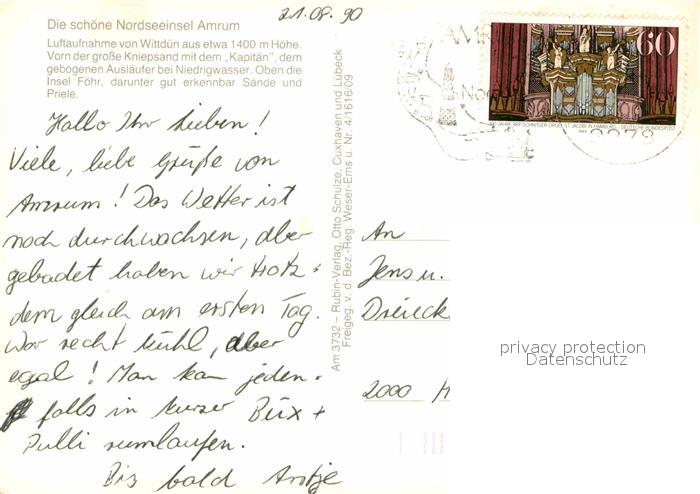 Die schöne Nordseeinsel Amrum
Luftaufnahme von Wittdün aus etwa 1400 m Höhe.
Vorn der große Kniepsand mit dem „Kapitän", dem
gebogenen Ausläufer bei Niedrigwasser. Oben die
Insel Föhr, darunter gut erkennbar Sände und
Priele.
21.08.90
Hallo Ihr Lieben!
Viele, liebe Grüße von
Amrum! Das Wetter ist
noch durchwachsen, aber
gebadet haben wir trotz-
dem gleich am ersten Tag.
War recht kühl, aber
egal! Man kann jeden-
falls in kurzer Büx +
Pulli rumlaufen.
Bis bald Antje
Am 3732 – Rubin-Verlag, Otto Schulze, Cuxhaven und Lübeck
Freigeg. v. d. Bez.-Reg. Weser-Ems u. Nr. 4/1616/09
60
300 JAHRE ARP SCHNITGER ORGEL ST. JACOBI IN HAMBURG
DEUTSCHE BUNDESPOST
An
Jens u.
Dreieck
2000 H
privacy protection
Datenschutz